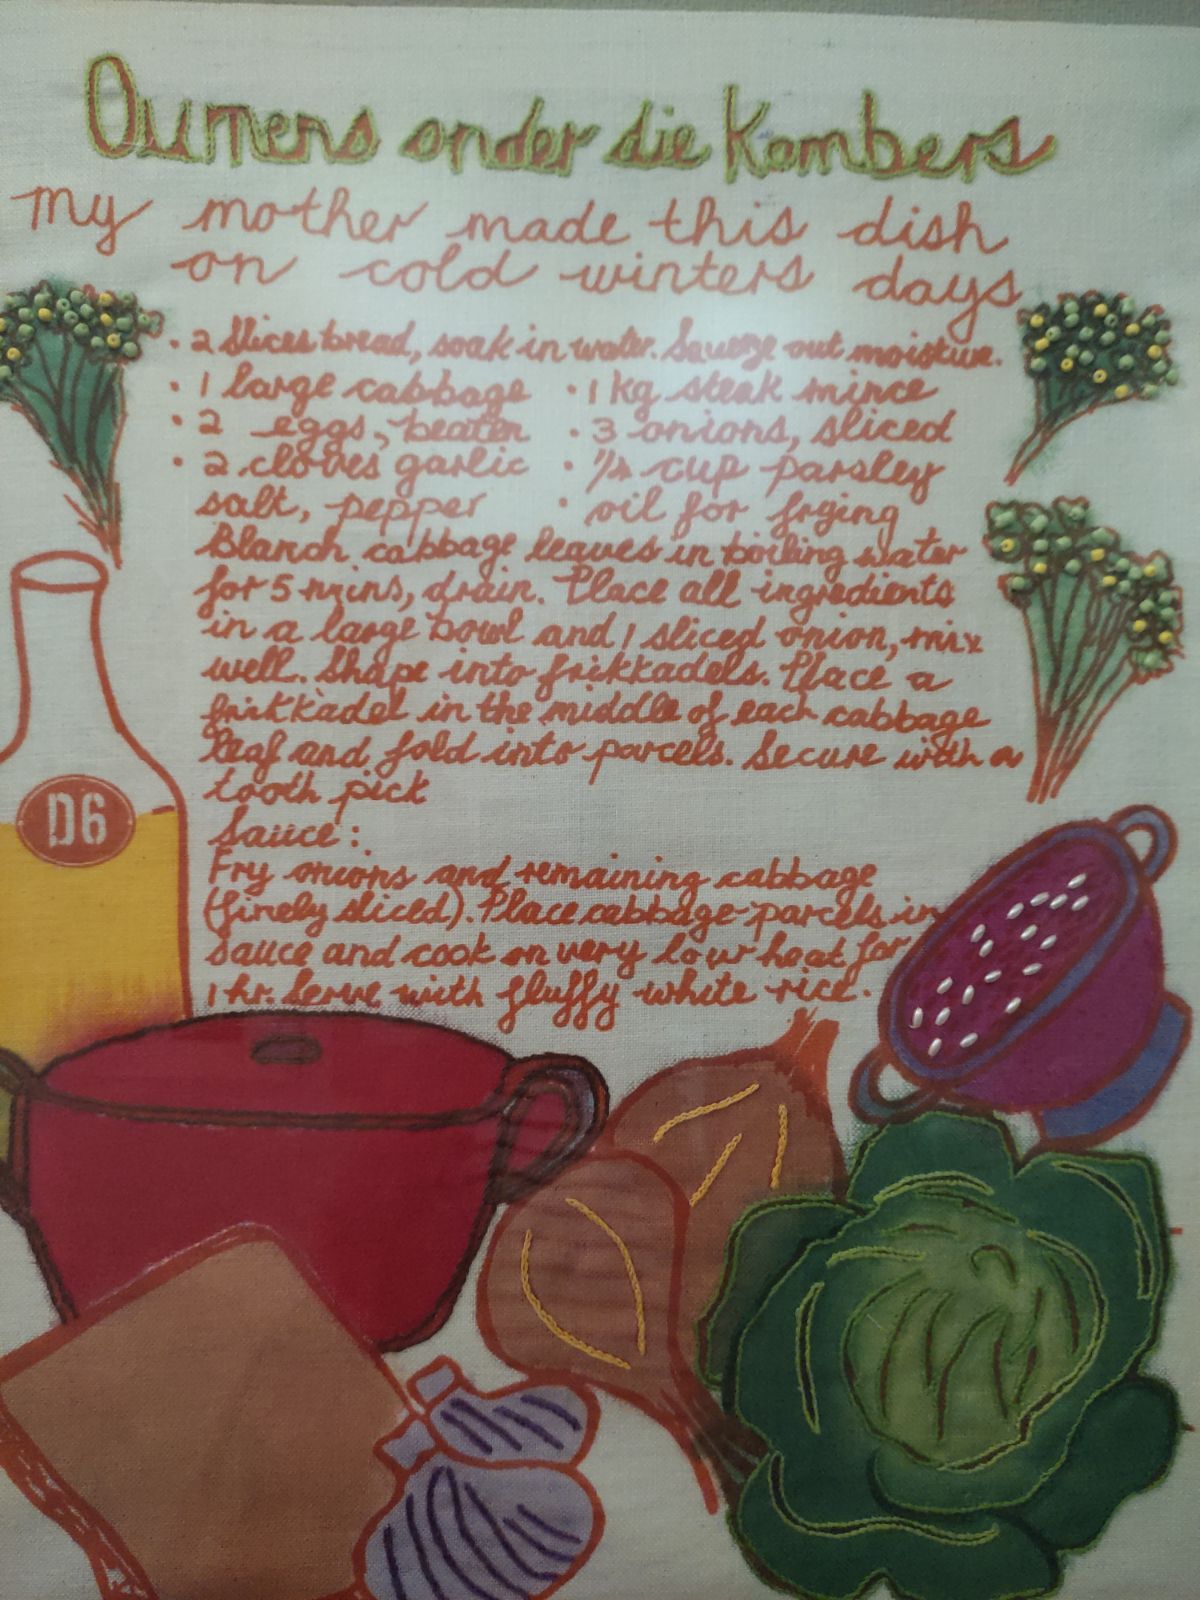 Oumens onder die Kombers
my mother made this dish
on cold winters days
• 2 Slices bread, soak in water. Squeeze out moisture.
• 1 large cabbage • 1 kg steak mince
• 2 eggs, beaten • 3 onions, sliced
• 2 cloves garlic • 1/4 cup parsley
salt, pepper • oil for frying
Blanch cabbage leaves in boiling water
for 5 mins, drain. Place all ingredients
in a large bowl and 1 sliced onion, mix
well. Shape into frikkadels. Place a
frikkadel in the middle of each cabbage
leaf and fold into parcels. Secure with a
tooth pick
Sauce:
Fry onions and remaining cabbage
(finely sliced). Place cabbage-parcels in
sauce and cook on very low heat for
1 hr. Serve with fluffy white rice.
D6